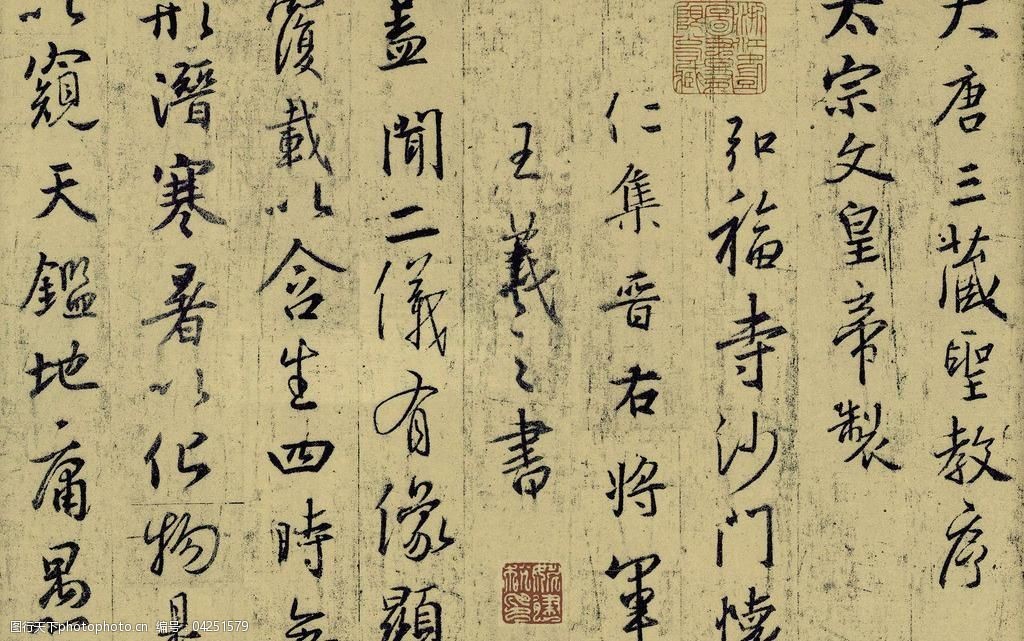 大唐三藏聖教序
太宗文皇帝製
弘福寺沙門懷
仁集晉右將軍
王羲之書
蓋聞二儀有像顯
覆載以含生四時無
形潛寒暑以化物是
以窺天鑑地庸愚
图行天下photophoto.cn 编号:04251579